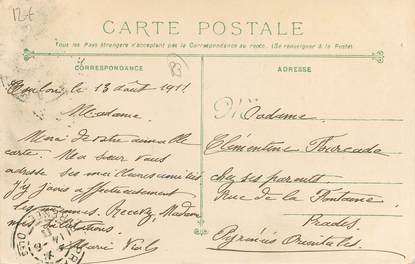 12€
CARTE POSTALE
Tous les Pays étrangers n'acceptent pas la Correspondance au recto. (Se renseigner à la Poste)
CORRESPONDANCE
83
ADRESSE
Toulon, le 13 août 1911
Madame
Merci de votre aimable
carte. Ma sœur vous
adresse ses meilleures amitiés
j'y joins affectueusement
les miennes. Recevez, Madame
mes salutations
Marie
Madame
Clémentine Fourcade
chez ses parents
Rue de la Fontaine
Prades
Pyrénées Orientales